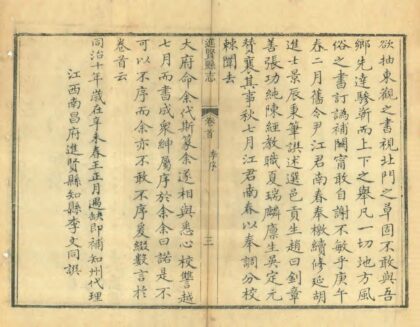 欲抽東觀之書視北門之草固不敢與吾
鄉先達驂靳而上下之舉凡一切地方風
俗之書訂譌補闕甯敢自謝不敏乎庚午
春二月舊令尹江君南春奉檄續修延胡
進士景辰秉筆譔述選邑貢生趙曰釗章
善張功純陳經教職夏瑞麟廪生吳定元
贊襄其事秋七月江君南春以奉調分校
棘闈去
進賢縣志
卷首
李序
三
大府命余代斯篆余遂相與悉心校讐越
七月而書成衆紳屬序於余余曰諾是不
可以不序而余亦不敢不序爰綴數言於
卷首云
同治十年歲在辛未春王正月過缺即補知州代理
江西南昌府進賢縣知縣李文同譔